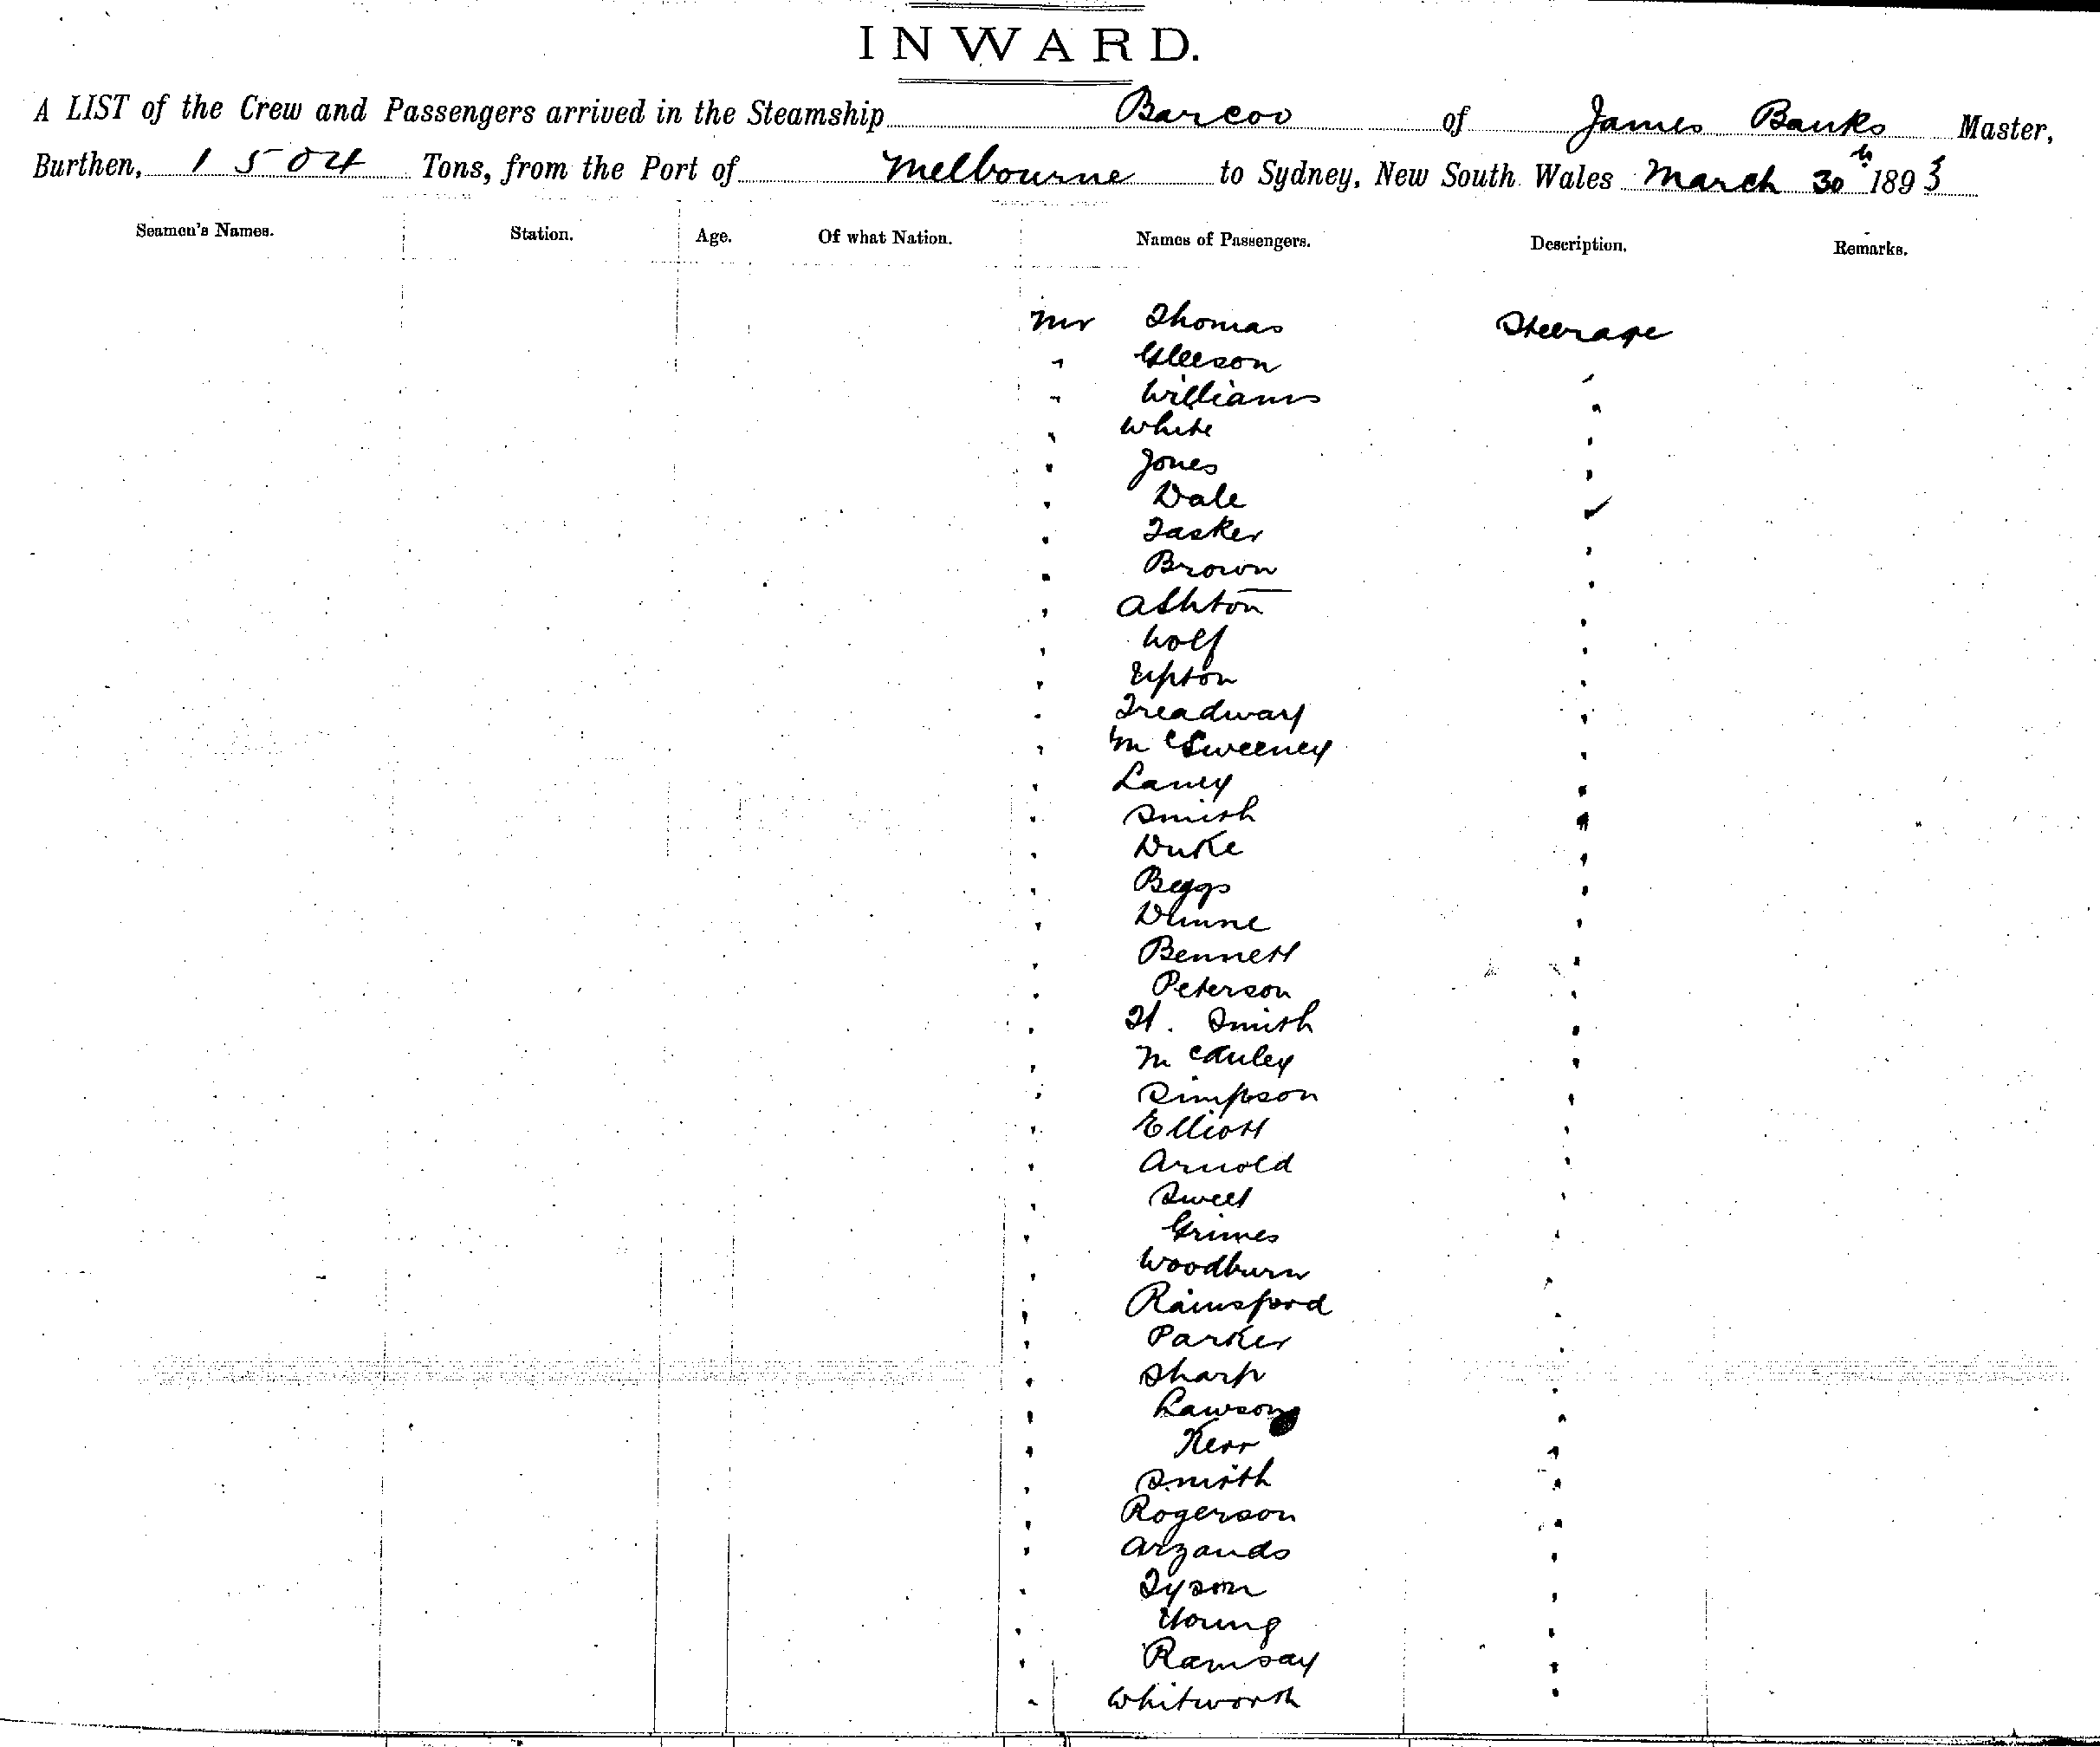 INWARD.
A LIST of the Crew and Passengers arrived in the Steamship Barcoo of James Banks Master,
Burthen, 1504 Tons, from the Port of Melbourne to Sydney, New South Wales March 30th 1893
Seamen's Names. Station. Age. Of what Nation. Names of Passengers. Description. Remarks.
Mr Thomas Steerage
" Gleeson "
" Williams "
" White "
" Jones "
" Dale "
" Tasker "
" Brown "
" Ashton "
" Wolf "
" Upton "
" Treadway "
" McSweeney "
" Laney "
" Smith "
" Duke "
" Beggs "
" Dunne "
" Bennett "
" Peterson "
" H. Smith "
" McAuley "
" Simpson "
" Elliott "
" Arnold "
" Sweet "
" Grimes "
" Woodburn "
" Rainsford "
" Parker "
" Sharp "
" Lawson "
" Kerr "
" Smith "
" Rogerson "
" "
" Tyson "
" Young "
" Ramsay "
" Whitworth "